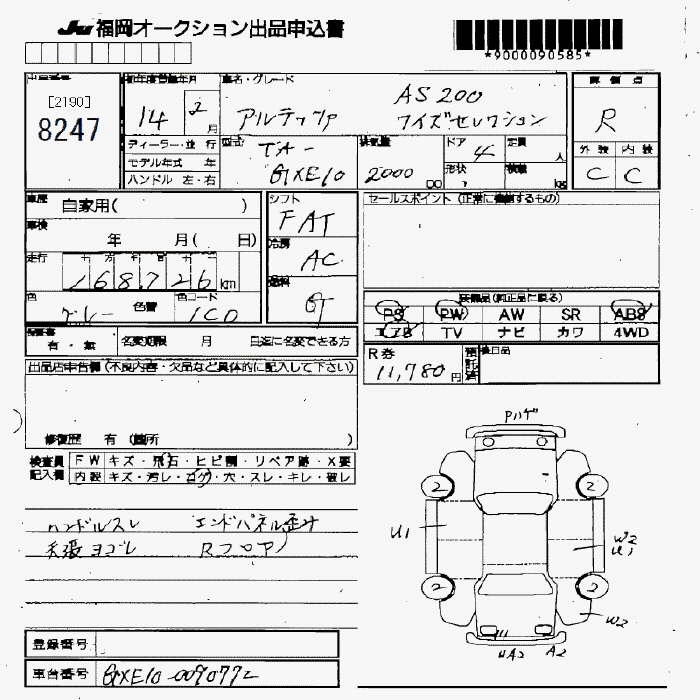 JU 福岡オークション出品申込書
*9000090585*
出品番号 初年度登録年月 車名・グレード 評価点
[2190]
8247
14 2月
アルテッツァ AS200
ワイズセレクション
R
ディーラー・並行
モデル年式 年
ハンドル 左・右
型式 TA-
GXE10
排気量 2000 CC
ドア 4 定員 人
形状 積載 kg
外装 内装
C C
車歴 自家用( )
車検 年 月( 日)
走行 十万千百十一
168,726 km
色 グレー 色替 色コード 1C0
シフト FAT
冷房 AC
燃料 G
セールスポイント (正常に機能するもの)
装備品(純正品に限る)
PS PW AW SR ABS
エアB TV ナビ カワ 4WD
有・無 名変期限 月 日迄に名変できる方
R券 11,780円 預託済 後日品
出品店申告欄(不良内容・欠品など具体的に記入して下さい)
修復歴 有 (箇所 )
検査員記入欄
FW キズ・飛石・ヒビ割・リペア跡・X要
内装 キズ・汚レ・コゲ・穴・スレ・キレ・破レ
ハンドルスレ エンドパネル歪み
天張ヨゴレ Rフロア
Pハゲ
2 2
U1 W2
U1
2 2
W2
UA2 A2
登録番号
車台番号 GXE10-0090772